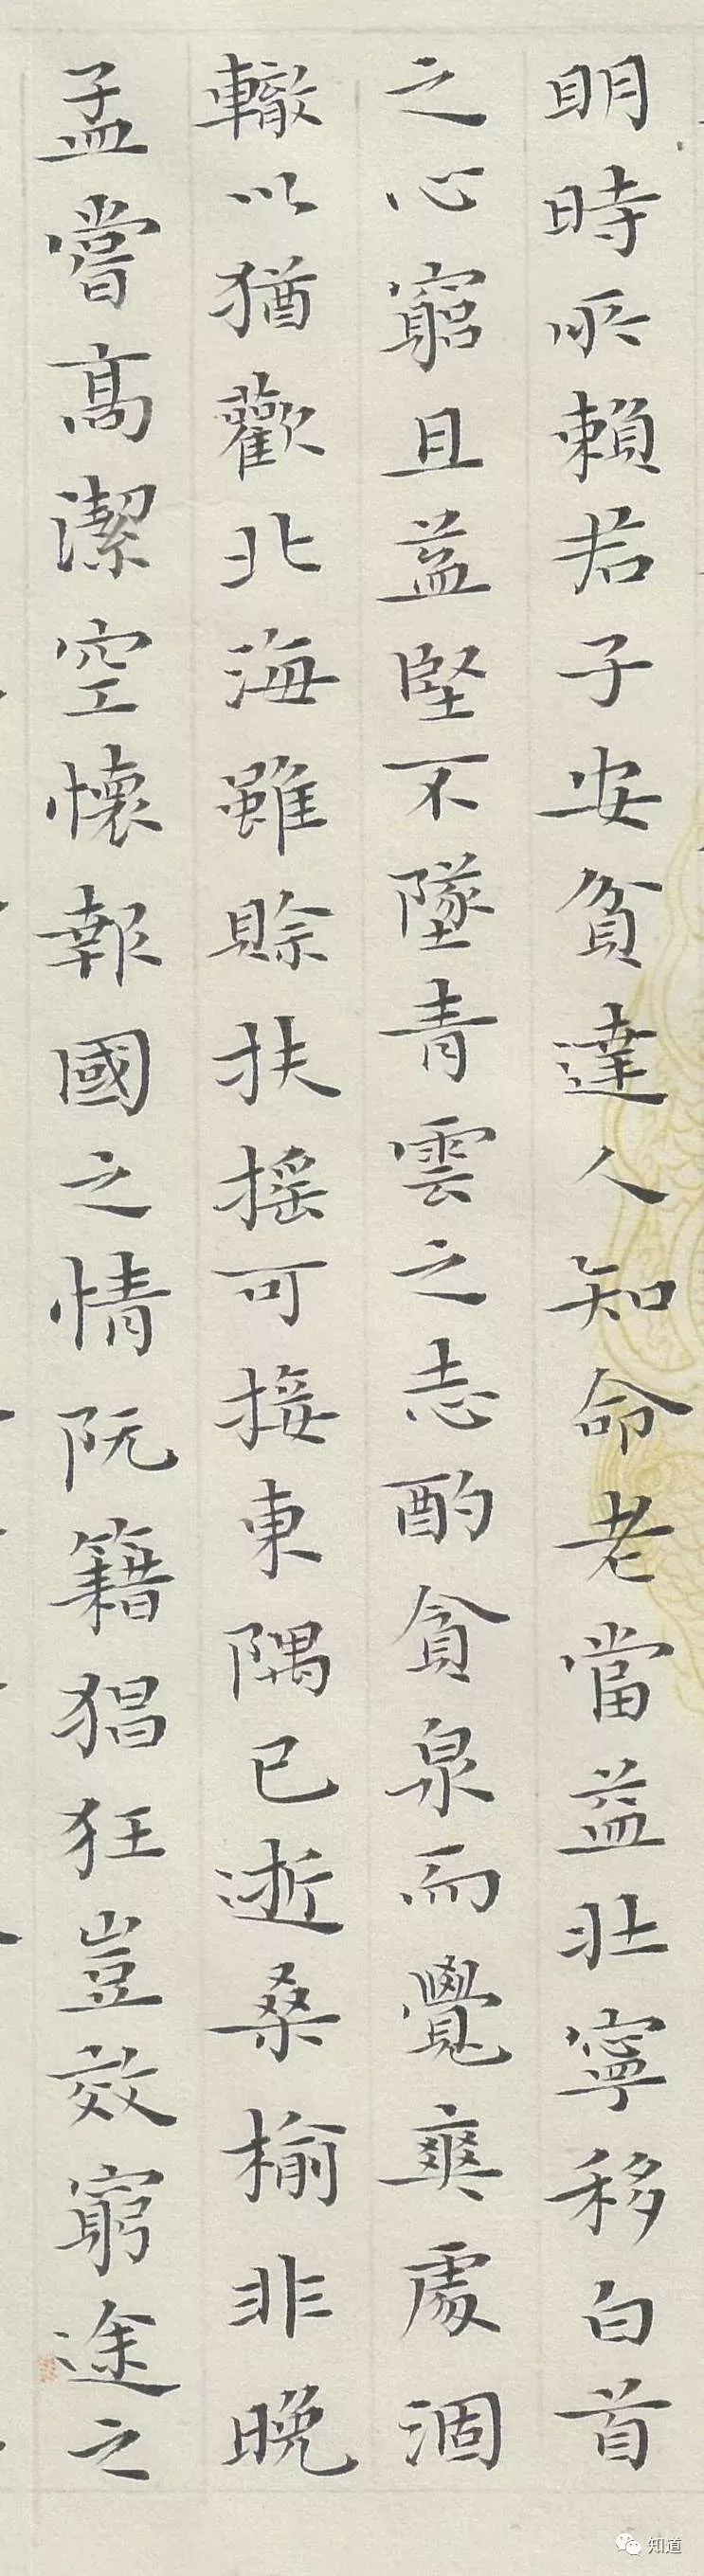 明時所賴君子安貧達人知命老當益壯寧移白首
之心窮且益堅不墜青雲之志酌貪泉而覺爽處涸
轍以猶歡北海雖賒扶搖可接東隅已逝桑榆非晚
孟嘗高潔空懷報國之情阮籍猖狂豈效窮途之
知道